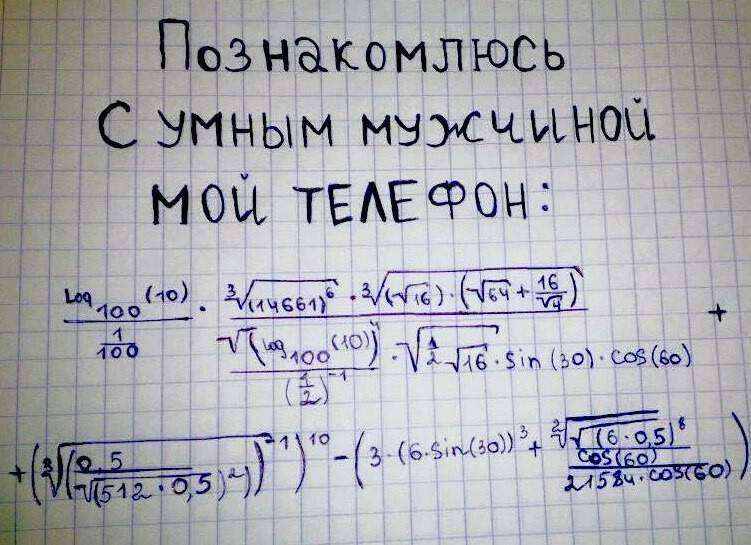 Познакомлюсь
с умным мужчиной
мой телефон:
(log₁₀₀(10))/(1/100) · (∛((14661)⁶) · ∛((√16) · (√64 + 16/√4)))/((√(log₁₀₀(10))⁴)/((1/2)⁻¹) · √(1/2 √16) · sin(30) · cos(60)) +
+ (∛((0,5/√((512 · 0,5)²))⁻¹))¹⁰ − (3 · (6 · sin(30))³ + (∛(√((6 · 0,5)⁶))/cos(60))/(21584 · cos(60)))